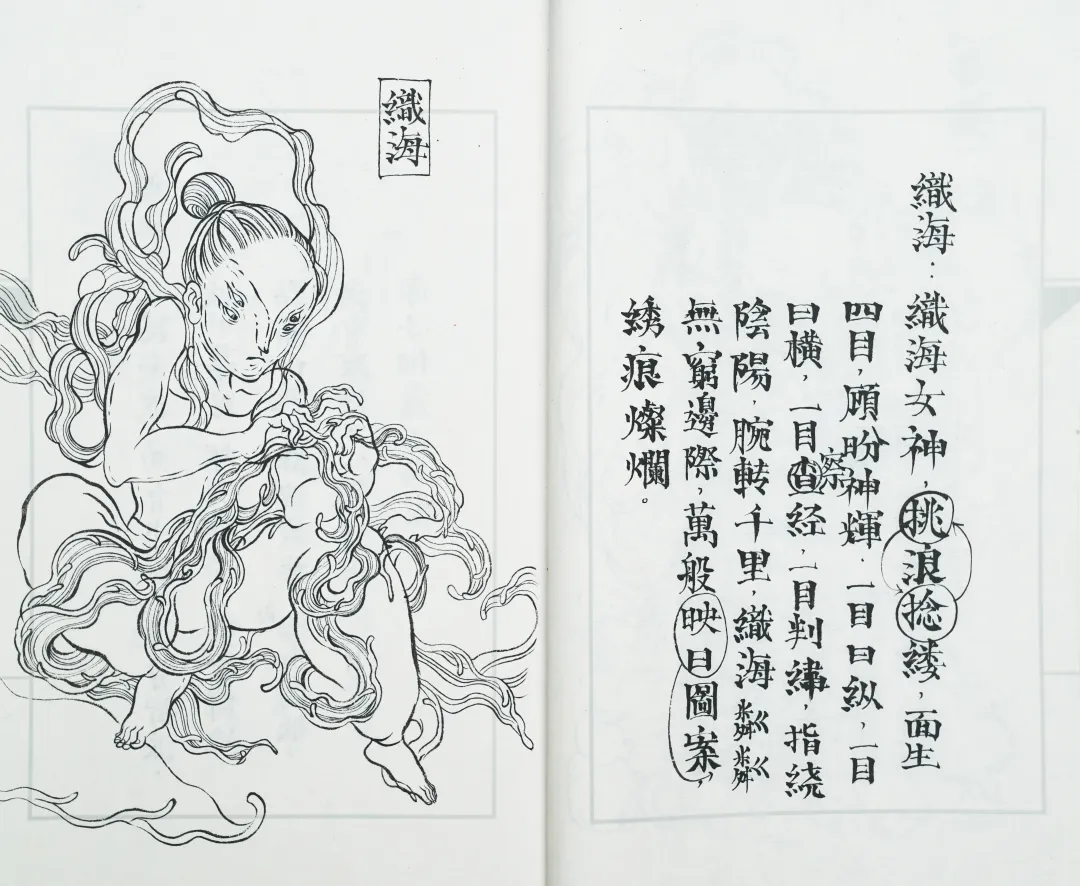 織海：織海女神，挑浪捻缕，面生
四目，顾盼神輝．一目曰纵，一目
曰橫，一目查经，一目判緯，指绕
察
陰陽．腕转千里，織海粼粼
無窮邊際，萬般映日圖案，
綉痕燦爛。
織海